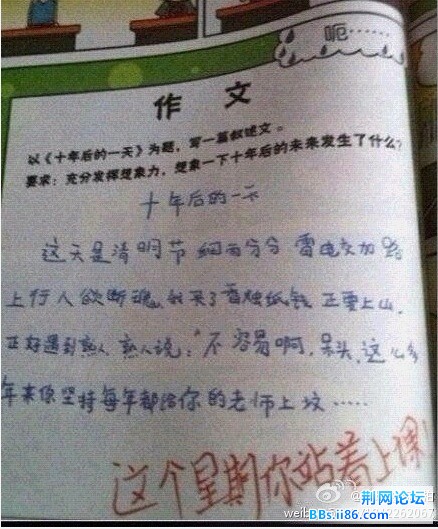 呃……
作 文
以《十年后的一天》为题，写一篇叙述文。
要求：充分发挥想象力，想象一下十年后的未来发生了什么？
十年后的一天
这天是清明节 细雨分分 雷电交加 路
上行人欲断魂，我买了香烛纸钱 正要上山，
正好遇到熟人 熟人说："不容易啊，呆头，这么多
年来你坚持每年都给你的老师上坟……
这个星期你站着上课！
荆网论坛
BBs.ii86.com